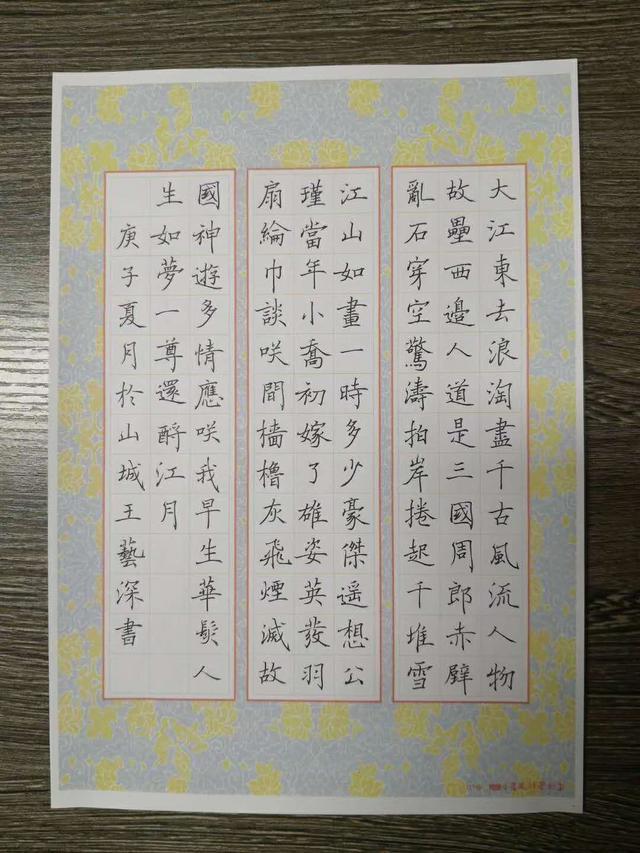 大江東去浪淘盡千古風流人物
故壘西邊人道是三國周郎赤壁
亂石穿空驚濤拍岸捲起千堆雪
江山如畫一時多少豪傑遥想公
瑾當年小喬初嫁了雄姿英發羽
扇綸巾談咲間檣櫓灰飛煙滅故
國神遊多情應咲我早生華髮人
生如夢一尊還酹江月
庚子夏月於山城王藝深書